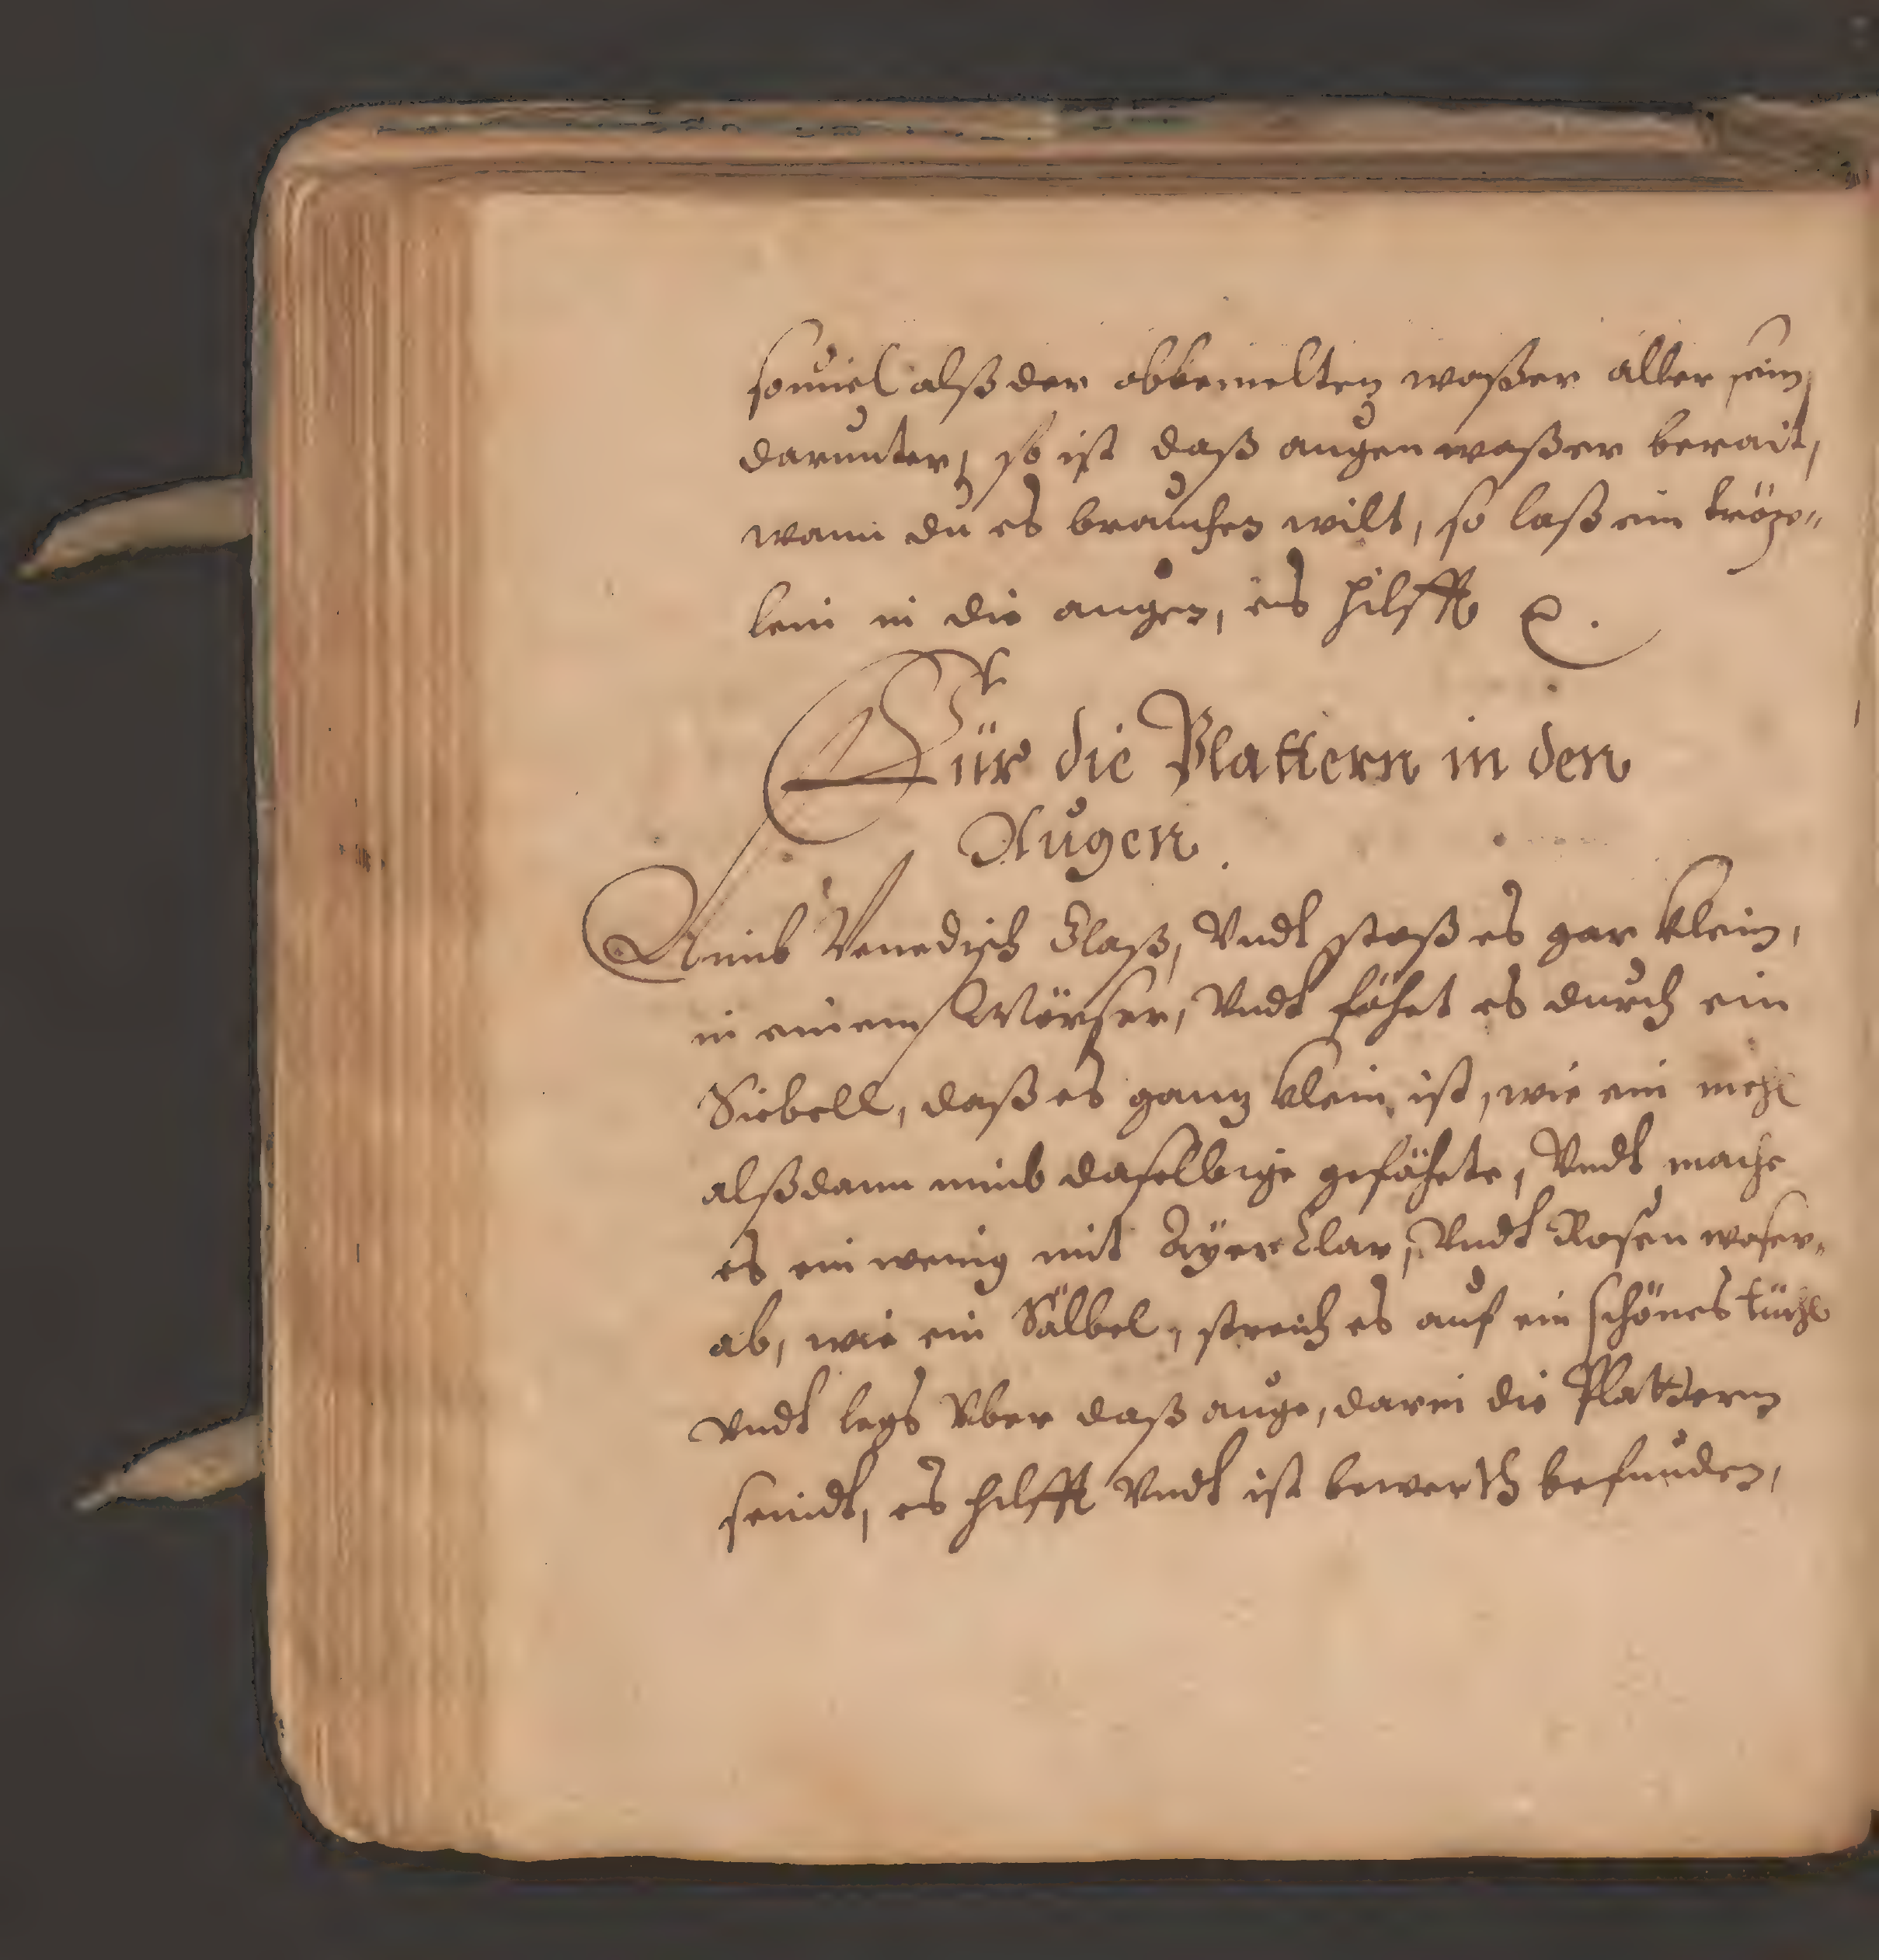 souiel alß der obbemelten waßer aller sein
darunter, so ist daß augen waßer berait,
wann du es brauchen wilt, so laß ein tröpf„
lein in die augen, es hilfft
Für die Blattern in den
Augen.
Nimb Venedisch Glaß, Vndt stoß es gar klein,
in einem Mörser, Vndt fähet es durch ein
Siebell, daß es ganz klein ist, wie ein mehl
alßdann nimb daselbige gefähete, Vndt mache
es ein wenig mit Ayer Clar, Vndt Rosen waser„
ab, wie ein Sälbel, streich es auf ein schönes tüchl
Vndt legs Vber daß auge, darin die Plattern
seindt, es hilfft Vndt ist bewerth befunden,